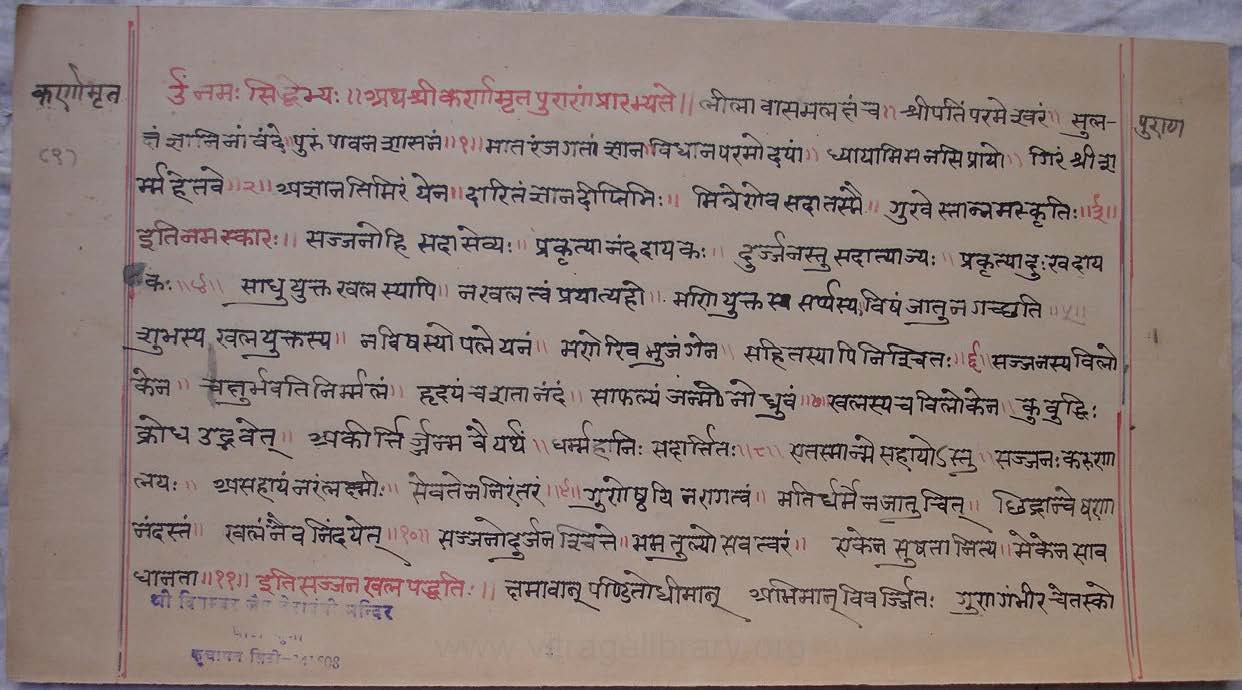 कर्णामृत
पुराण
(१)
ॐ नमः सिद्धेभ्यः ॥ अथ श्री कर्णामृत पुराणं प्रारभ्यते ॥ लीला वासमलत्तं च ॥ श्रीपतिं परमेश्वरं ॥ सुल-
त्तं ज्ञानिनां वंदे ॥ पुरुं पावन शासनं ॥१॥ मातरं जगतां ज्ञान विधान परमोदयां ॥ ध्यायामि मनसि प्रायो ॥ गिरं श्री श
र्म्म हेतवे ॥२॥ अज्ञान तिमिरं येन ॥ दारितं ज्ञान दीप्तिभिः ॥ मित्रेणेव सदा तस्मै ॥ गुरवे स्तान्नमस्कृतिः ॥३॥
इति नमस्कारः ॥ सज्जनो हि सदा सेव्यः ॥ प्रकृत्यानंददायकः ॥ दुर्ज्जनस्तु सदा त्याज्यः ॥ प्रकृत्या दुःखदाय
कः ॥४॥ साधु युक्त खलस्यापि ॥ न खलत्वं प्रयात्यहो ॥ मणि युक्तस्य सर्प्पस्य विषं जातु न गच्छति ॥५॥
शुभस्य खलयुक्तस्य ॥ न विषस्योपलेयनं ॥ मणेरिव भुजंगेन ॥ सहितस्यापि निश्चितः ॥६॥ सज्जनस्य विलो
केन ॥ चक्षुर्भवति निर्म्मलं ॥ हृदयं च शतानंदं ॥ साफल्यं जन्मनो ध्रुवं ॥७॥ खलस्य च विलोकेन ॥ कुबुद्धिः
क्रोध उद्भवेत् ॥ अकीर्त्ति र्ज्जन्म वैयर्थं ॥ धर्म्महानिः सदार्त्तितः ॥८॥ एतस्मान्मे सहायोऽस्तु ॥ सज्जनः करुणा
लयः ॥ असहायं नरं लक्ष्मीः ॥ सेवते न निरंतरं ॥९॥ गुणेष्वपि न रागत्वं ॥ मतिर्धर्मे न जातु चित् ॥ छिद्रान्वेषणा
नंदस्तं ॥ खलं नैव निंदयेत् ॥१०॥ सज्जनो दुर्जनश्चित्ते ॥ मम तुल्यो सवत्वरं ॥ एकेन सुषता नित्य ॥ मेकेन साव
धानता ॥११॥ इति सज्जन खल पद्धतिः ॥ क्षमावान् पण्डितो धीमान् अभिमान् विवर्ज्जितः गुण गंभीर चेतस्को
श्री दिगम्बर जैन तेरापंथी मन्दिर
कुचामन सिटी-
www.vitragelibrary.org